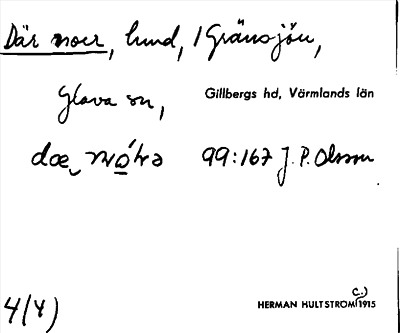 Där norr, lund, / Gränsjön,
Glava sn, Gillbergs hd, Värmlands län
99:167 J. P. Olsson
4/4)
HERMAN HULTSTRÖM (C.) 1915